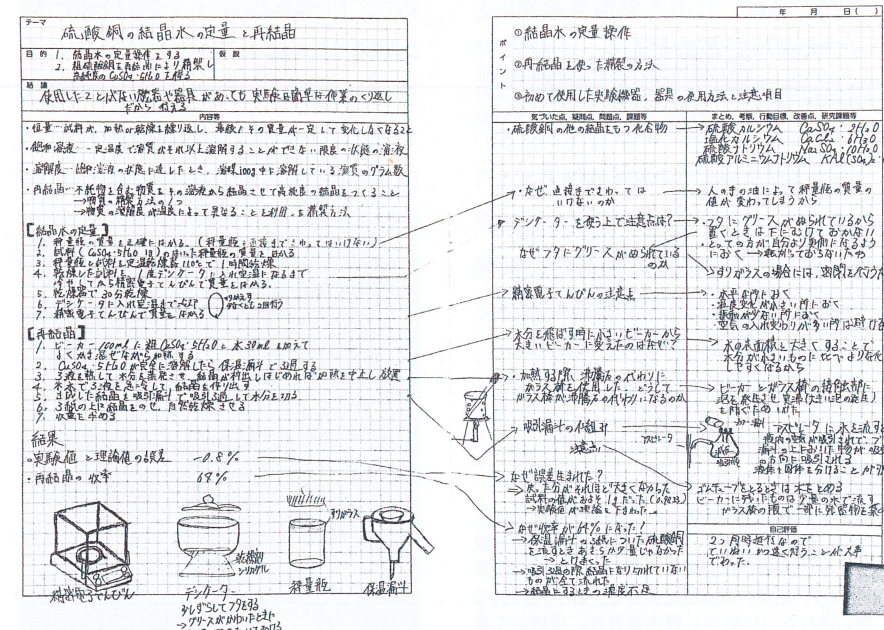 テーマ
硫酸銅の結晶水の定量と再結晶
目的
1. 結晶水の定量操作をする
2. 粗硫酸銅を再結晶により精製し
高純度のCuSO4・5H2Oを得る
仮説
結論
使用したことがない機器や器具があっても実験は簡単な作業のくり返し
だから行える
内容等
・恒量…試料が、加熱や乾燥を繰り返し、最後にその質量が一定して変化しなくなること
・飽和溶液…一定温度で溶質がそれ以上溶解することができない限度の状態の溶液
・溶解度…飽和溶液の状態に達したとき、溶媒100g中に溶解している溶質のグラム数
・再結晶…不純物を含む物質をその溶液から結晶させて高純度の結晶をつくること
→物質の精製方法の1つ
→物質の溶解度が温度によって異なることを利用した精製方法
【結晶水の定量】
1. 秤量瓶の質量を正確にはかる。(秤量瓶:直接手でさわってはいけない)
2. 試料(CuSO4・5H2O 1g)のはいった秤量瓶の質量をはかる
3. 秤量瓶と試料を定温乾燥器110℃で1時間乾燥
4. 乾燥した試料を、1度デシケータに入れ室温になるまで
冷やしてから精密電子てんびんで質量をはかる。
5. 乾燥器で30分乾燥
6. デシケータに入れ室温まで冷ます
7. 精密電子てんびんで質量をはかる
【再結晶】
1. ビーカー100mlに粗CuSO4・5H2Oと水30mlを加えて
よくかき混ぜながら加熱する
2. CuSO4・5H2Oが完全に溶解したら保温漏斗でろ過する
3. ろ液を熱して水分を蒸発させ、結晶が析出しはじめれば加熱を中止し放置
4. 氷水でろ液を冷して、結晶を作り出す
5. 生成した結晶を吸引漏斗で吸引ろ過して水分を切る
6. ろ紙の上に結晶をのせ、自然乾燥させる
7. 収量を求める
結果
・実験値と理論値の誤差 -0.8%
・再結晶の収率 64%
乾燥剤
シリカゲル
すりガラス
精密電子てんびん
デシケーター
秤量瓶
保温漏斗
少しずらしてフタをする
年 月 日( )
ポイント
①結晶水の定量操作
②再結晶を使った精製の方法
③初めて使用した実験機器、器具の使用方法と注意項目
気づいた点、疑問点、問題点、課題等
まとめ、考察、行動目標、改善点、研究課題等
・硫酸銅の他の結晶をもつ化合物
硫酸カルシウム CaSO4・2H2O
塩化カルシウム CaCl2・6H2O
硫酸ナトリウム Na2SO4・10H2O
硫酸アルミニウムカリウム
・なぜ、直接手でさわっては
いけないのか
人の手の油によって秤量瓶の質量の
値が変わってしまうから
デシケーターを使う上で注意点は?
・フタにグリースがぬられているから
置くときは下にむけておかない
・とっての方が自分より奥側になるよう
におく→転がっておちないため
なぜフタにグリースがぬられている
のか
すりガラスの場合には、密閉を行うため
精密電子てんびんの注意点
・水平な所におく
・温度変化が小さい所におく
・振動が少ない所におく
・空気の入れ変わりが多い所はさける
水分を飛ばす時に小さいビーカーから
大きいビーカーに変えたのはなぜ?
水の表面積を大きくすることで
水分が小さいものに比べより
しやすくなるから
・加熱する際、沸騰石の代わりに
ガラス棒を使用した。どうして
ガラス棒が沸騰石の代わりになるのか
ビーカーとガラス棒の接触部に
泡を発生させ突沸(大きい泡の発生)
を防ぐため
吸引漏斗の仕組み
注意点
アスピレータ
アスピレータに水を流すと
ゴムホースをとるときは水をとめる
なぜ誤差が生まれた?
試料の値がおよそ1gだった
なぜ収率が64%になった?
→保温漏斗のろ紙についた硫酸銅
→吸引ろ過の際、結晶になり切れていない
ものが全て流れた
→結晶にするときの濃度不足
自己評価
2つ同時進行なので
ていねいかつ速く行うことが大事
でわった。